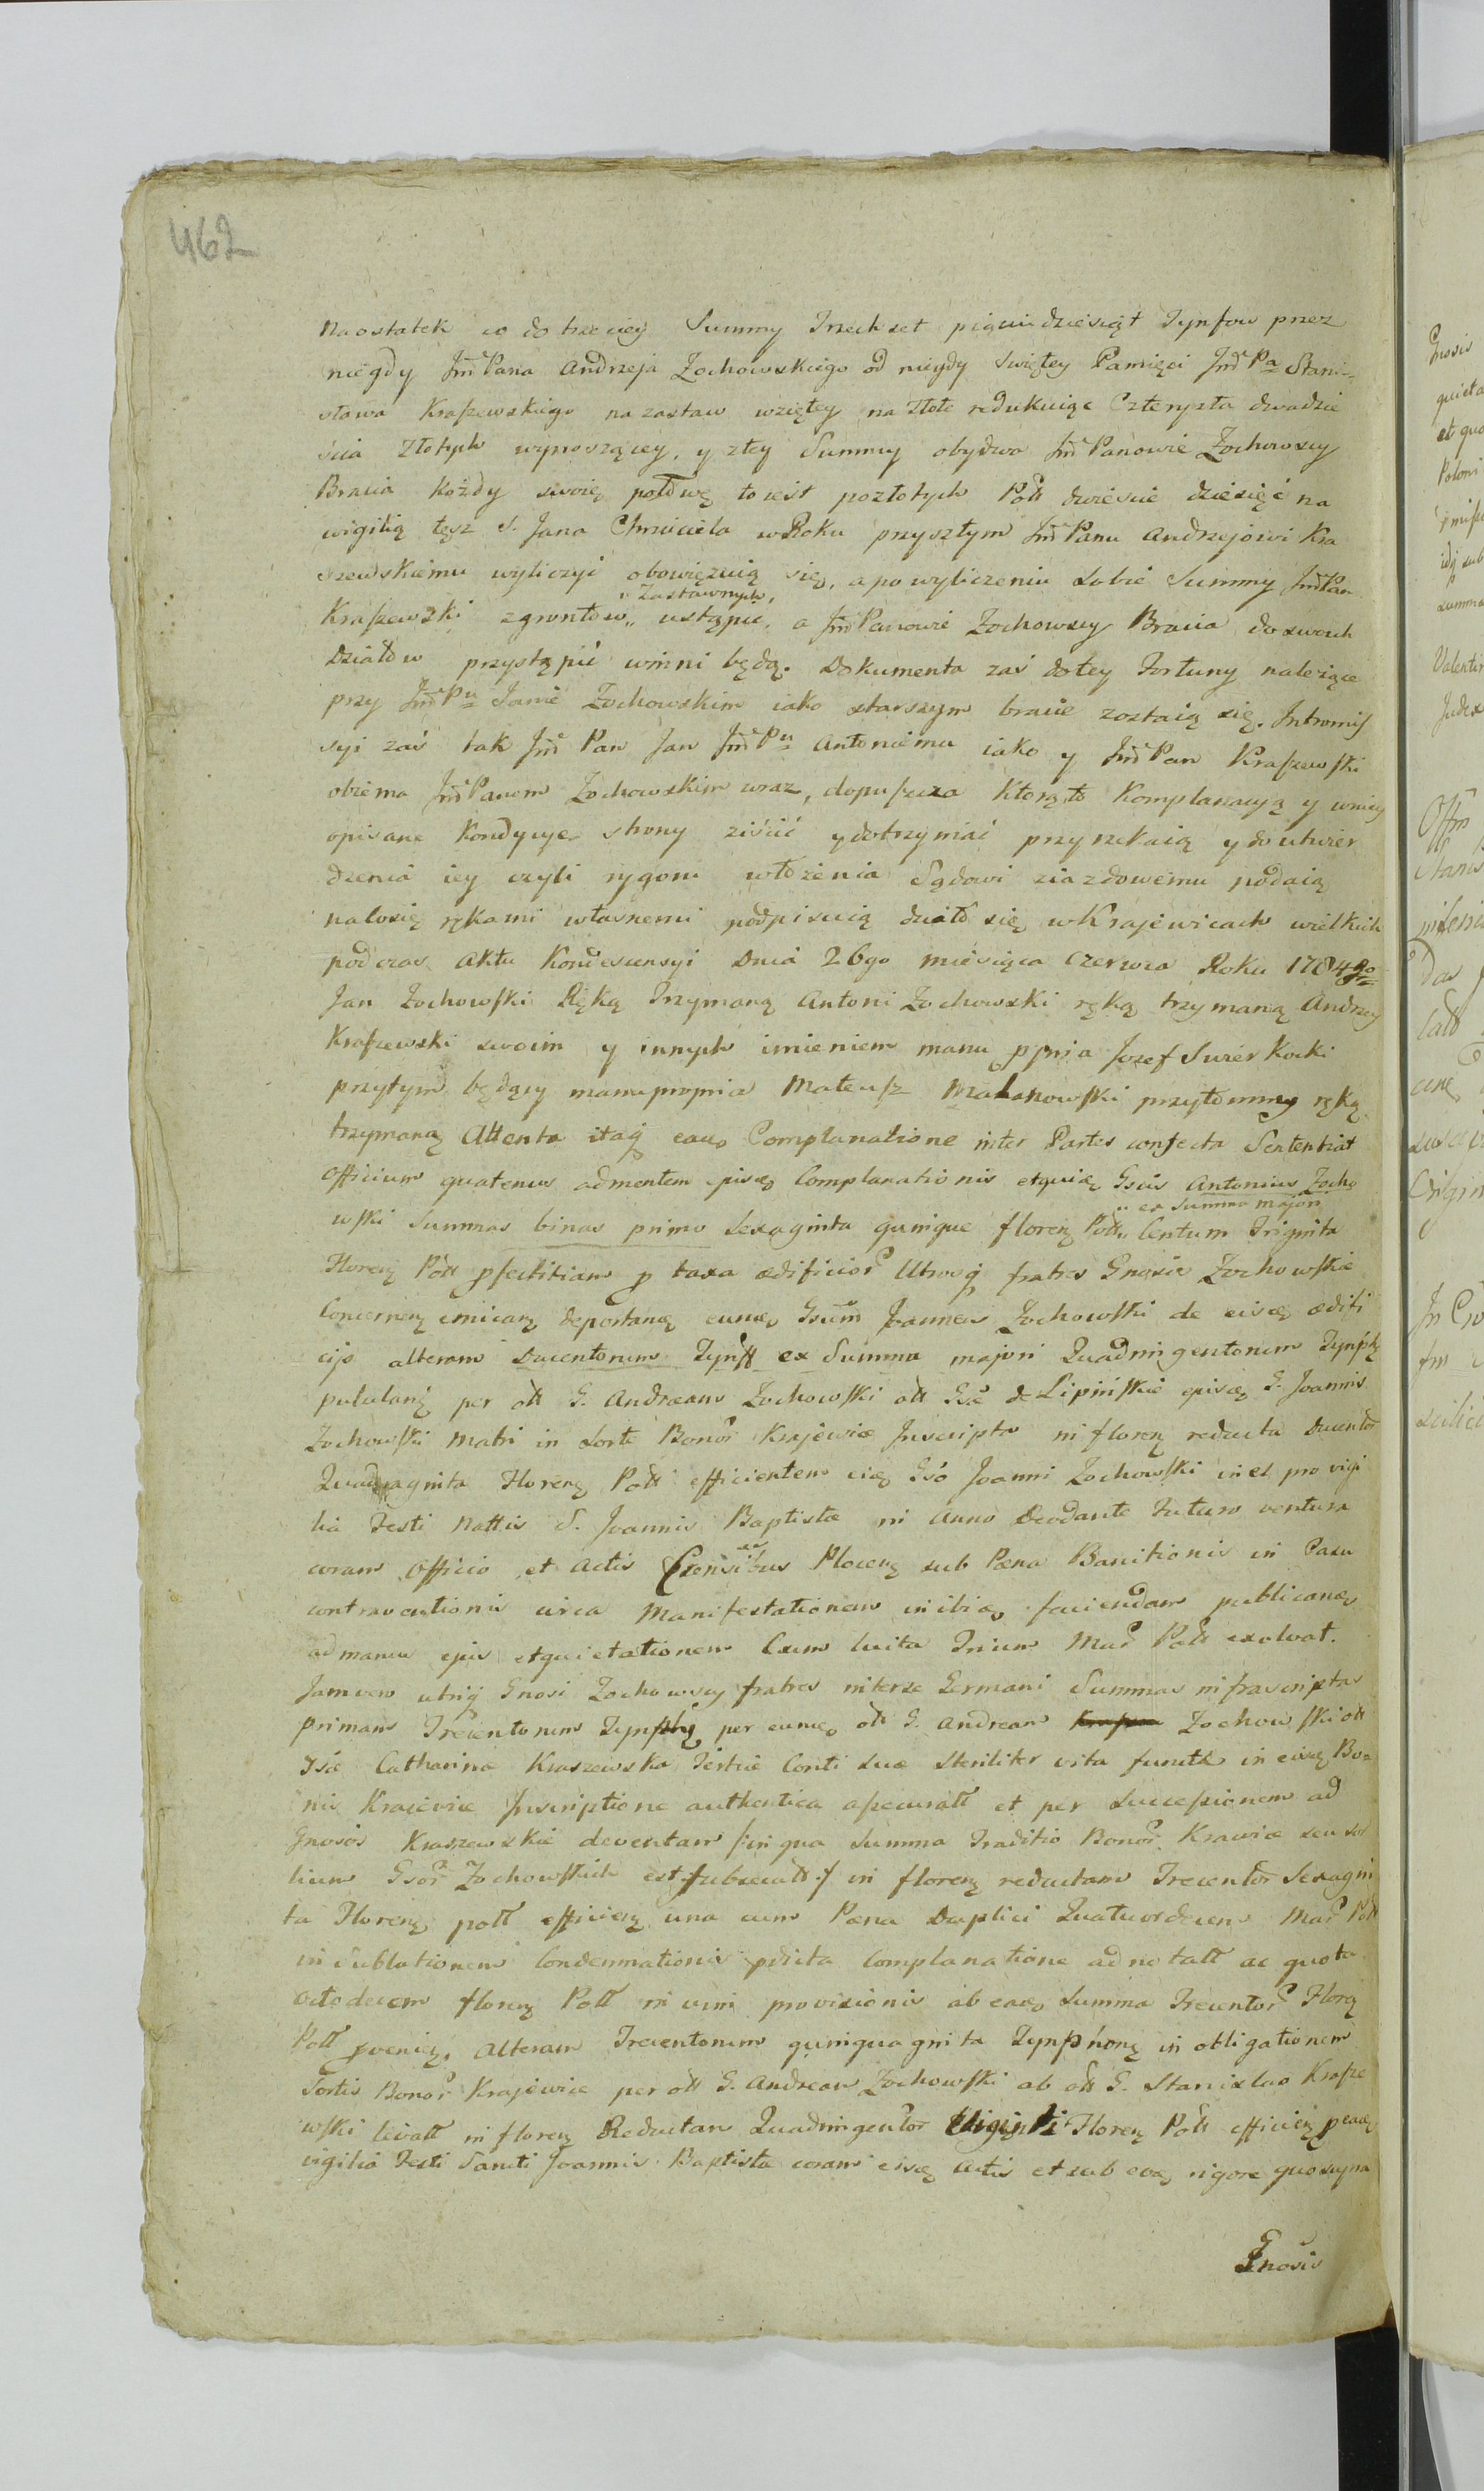 462
Naostatek co do trzeciey Summy Trzechset pięciudziesiąt Tynfow przez
niegdy Jmć Pana Andrzeja Zochowskiego od niegdy Swiętey Pamięci Jmć Pa Stani-
sława Kraszewskiego na zastaw wziętey na złote redukuiąc Czterysta dwadzie
scia złotych wynoszącey, y ztey Summy obydwa Jmć Panowie Zochowscy
Bracia każdy swoię połowę to iest pozłotych Poll dwiescie dziesięć na
wigilią tęsz S. Jana Chrzciciela w Roku przyszłym Jmć Panu Andrzejowi Kra
szewskiemu wyliczyć obowięzuią się, a po wyliczeniu Sobie Summy Jmć Pan
Kraszewski zgrontow „ zastawnych, ustąpić, a Jmć Panowie Zochowscy Bracia do swoich
Działow przystąpić winni będą. Dokumenta zaś do tey Fortuny należące
przy Jmć Pu Janie Zochowskim iako starszym bracie zostaią się. Intromis
syi zaś tak Jmć Pan Jan Jmć Pu Antoniemu iako y Jmć Pan Kraszewski
obiema Jmć Panom Zochowskim wraz, dopuszcza którą to Komplanacyą y wniey
opisane Kondycye strony ziścić y dotrzymać przyrzekaią y do utwier
dzenia iey czyli rygoru włożenia Sądowi ziazdowemu podaią
na to się rękami własnemi podpisuią działo się w Krajewicach wielkich
podczas Aktu Kondescensyi Dnia 26go miesiąca Czerwca Roku 1784go
Jan Zochowski Ręką Trzymaną Antoni Zochowski ręką trzymaną Andrzey
Kraszewski swoim y innych imieniem manu ppria Jozef Swierkocki
przytym będący manu propria Mateusz Malanowski przytomny ręką
trzymaną Attenta itaq eaco Complanatione inter Partes confecta Sententiat
Officium quatenus ad mentem ejusco Complanationis et quia Gsus Antonius Zocho
wski Summas binas primo Sexaginta quinque floren Poll „ ex Summa majori Centum Triginta
Floren Poll pfectitiam p taxa ædificior Utrosq fratres Gnosie Zochowskie
Concernen emican deportanę eumco Gsum Joannem Zochowski de eisco ædifi
cijs alteram Ducentorum Tynff ex Summa majori Quadringentorum Tynph
pululan per oll G. Andream Zochowski oll Gsæ de Lipińskie ejusco G. Joannis
Zochowski Matri in Sorte Bonor Krajewice Inscripta in floren reducta Ducentor
Quadraginta Floren Poll efficientem eico Gso Joanni Zochowski in et pro vigi
lia Festi Nattis S. Joannis Baptistæ in Anno Deodante Futuro ventura
coram Officio et Actis Crensibus Plocen sub Pæna Banitionis in Casu
contraventionis circa Manifestationem in ibico faciendam publicanco
ad manus ejus et quietationem Cum luita Trium Mar Poll exolvat.
Jamvero utriq Gnosi Zochowscy fratres inter se Germani Summas infrascriptas
primam Trecentorum Tynph per eumco oll G. Andream Zochowski oll
Gsæ Catharinæ Kraszewska Tertiæ Conti suæ steriliter vita functæ in eisco Bo-
nis Krajewice Inscriptione authentica assecuratt et per Successionem ad
Gnosos Kraszewskie deventam /:in qua Summa Traditio Bonor Krajewice seu sor
tium Gsor Zochowskich est subsecutt:/ in floren reductam Trecentor Sexagin
ta Floren poll efficien una cum Pæna Duplici Quatuordecim Mar Poll
in sublationem Condemnationis pdicta Complanatione adnotatt ac quota
octodecem floren Poll in vim provisionis ab eaco Summa Trecentor Floren
Poll provenien, Alteram Trecentorum quinquaginta Tynphon in obligationem
Sortis Bonor Krajewice per oll G. Andream Zochowski ab oll G. Stanislao Krasze
wski levatt in floren Reductam Quadringentor Viginti Floren Poll efficien p eaco
vigilia Festi Sancti Joannis Baptistæ coram eisco Actis et sub eoco rigore quo supra
Gnosis